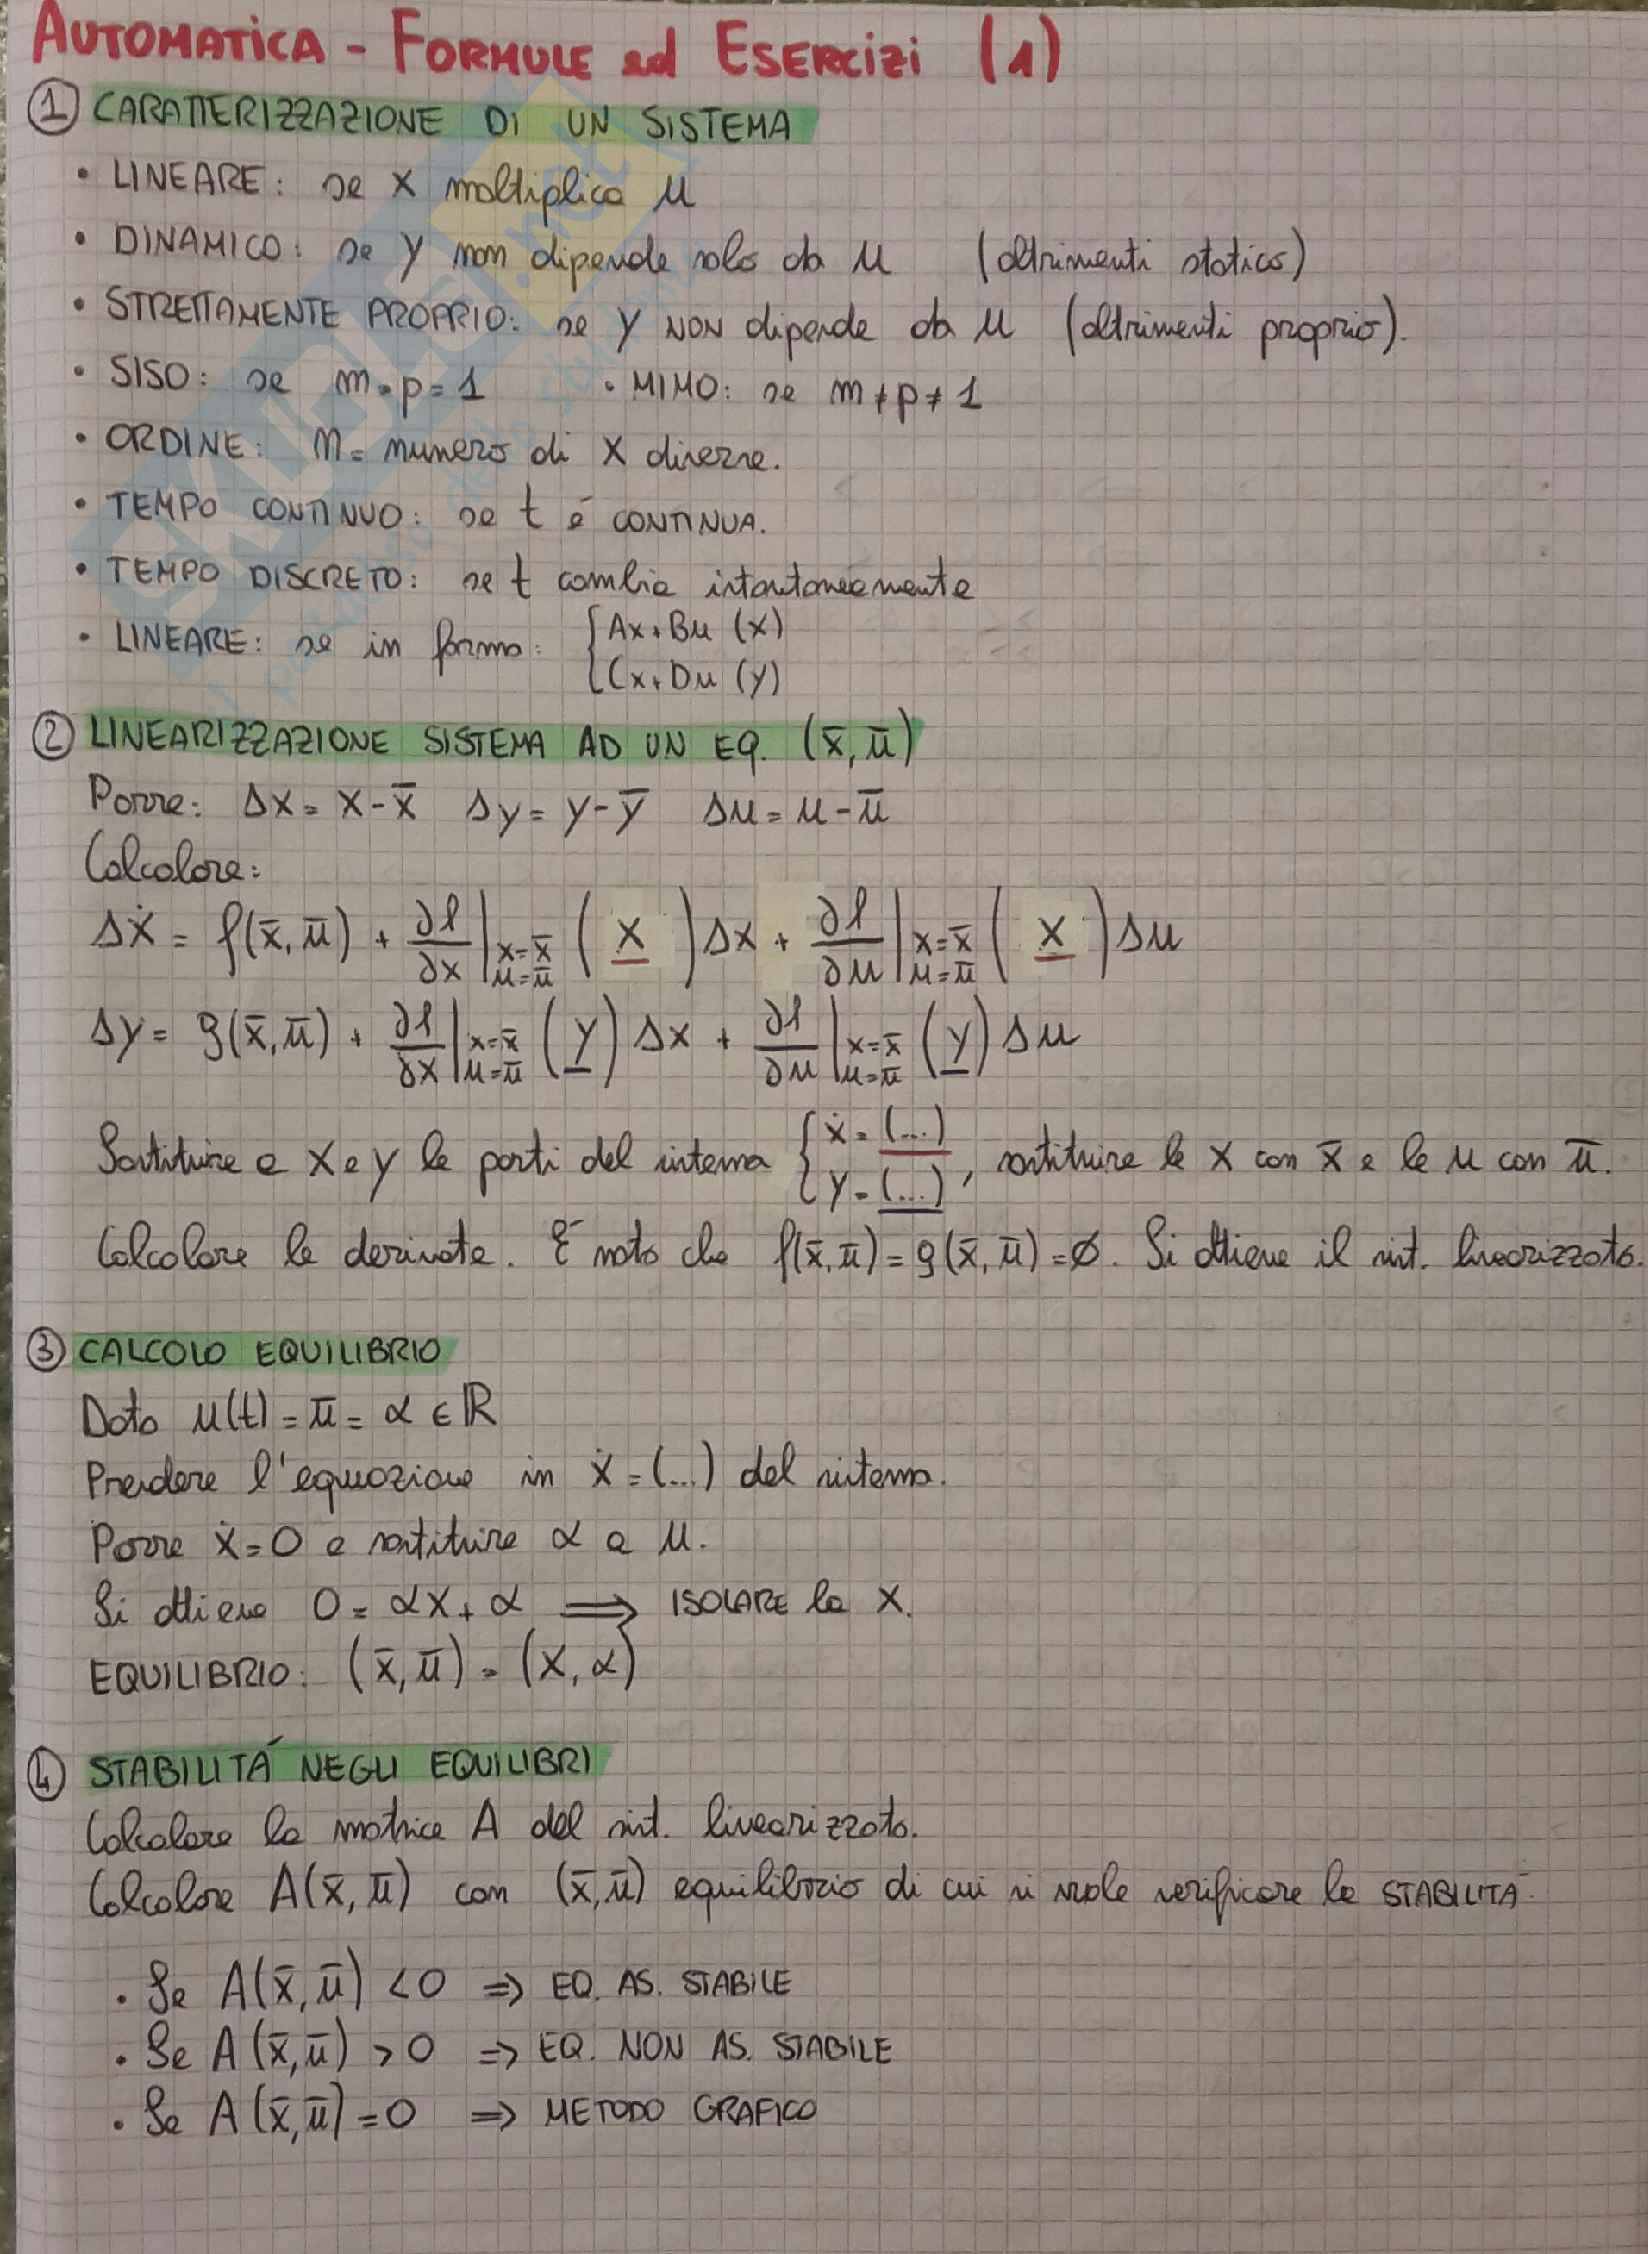 AUTOMATICA - FORMULE ed ESERCIZI (1)
① CARATTERIZZAZIONE DI UN SISTEMA
• LINEARE: se x moltiplica u
• DINAMICO: se y non dipende solo da u (altrimenti statico)
• STRETTAMENTE PROPRIO: se y NON dipende da u (altrimenti proprio).
• SISO: se m=p=1 • MIMO: se m≠p≠1
• ORDINE: n= numero di x diverse.
• TEMPO CONTINUO: se t é CONTINUA.
• TEMPO DISCRETO: se t cambia istantaneamente
• LINEARE: se in forma: { Ax+Bu (x)
Cx+Du (y)
② LINEARIZZAZIONE SISTEMA AD UN EQ. (x̄, ū)
Porre: Δx = x - x̄ Δy = y - ȳ Δu = u - ū
Calcolare:
Δẋ = f(x̄, ū) + ∂f/∂x |x=x̄ u=ū ( x ) Δx + ∂f/∂u |x=x̄ u=ū ( x ) Δu
Δy = g(x̄, ū) + ∂f/∂x |x=x̄ u=ū (y) Δx + ∂f/∂u |x=x̄ u=ū (y) Δu
Sostituire a x e y le parti del sistema { ẋ = (...) y = (...) , sostituire le x con x̄ e le u con ū.
Calcolare le derivate. É noto che f(x̄, ū) = g(x̄, ū) = Ø. Si ottiene il sist. linearizzato.
③ CALCOLO EQUILIBRIO
Dato u(t) = ū = α ∈ ℝ
Prendere l'equazione in ẋ = (...) del sistema.
Porre ẋ = 0 e sostituire α a u.
Si ottiene 0 = αx + α ⟹ ISOLARE la x.
EQUILIBRIO: (x̄, ū) = (x, α)
④ STABILITÁ NEGLI EQUILIBRI
Calcolare la matrice A del sist. linearizzato.
Calcolare A(x̄, ū) con (x̄, ū) equilibrio di cui si vuole verificare la STABILITÁ.
• Se A(x̄, ū) < 0 ⇒ EQ. AS. STABILE
• Se A(x̄, ū) > 0 ⇒ EQ. NON AS. STABILE
• Se A(x̄, ū) = 0 ⇒ METODO GRAFICO